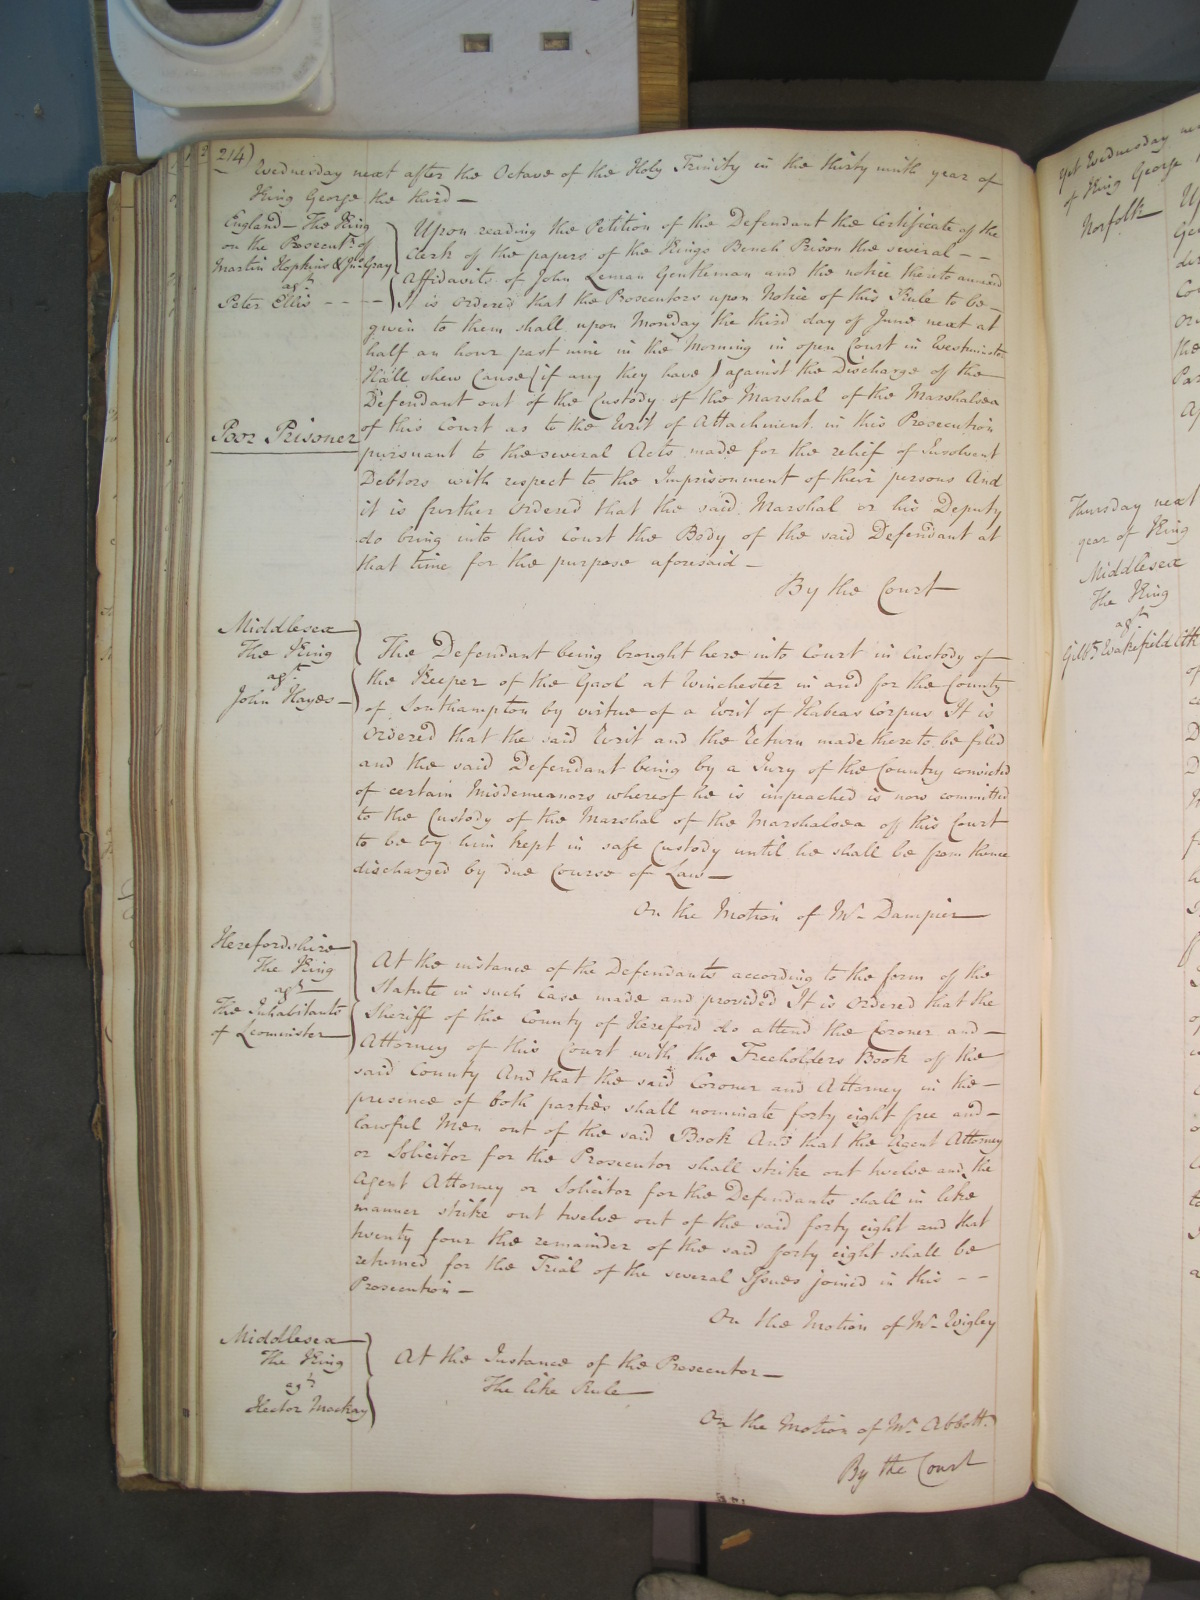 214)
Wednesday next after the Octave of the Holy Trinity in the thirty ninth year of
King George the third —
England — The King
on the Prosecutn. of
Martin Hopkins & Jno. Gray
agt.
Peter Ellis - - - -
Upon reading the Petition of the Defendant the Certificate of the
Clerk of the papers of the Kings Bench Prison the several - -
Affidavits of John Leman Gentleman and the notice thereto annexed
It is Ordered that the Prosecutors upon Notice of this Rule to be —
given to them shall upon Monday the third day of June next at
half an hour past nine in the Morning in open Court in Westminster
Hall shew Cause (if any they have) against the Discharge of the
Defendant out of the Custody of the Marshal of the Marshalsea
Poor Prisoner
of this Court as to the Writ of Attachment in this Prosecution
pursuant to the several Acts made for the relief of Insolvent
Debtors with respect to the Imprisonment of their persons And
it is further Ordered that the said Marshal or his Deputy
do bring into this Court the Body of the said Defendant at
that time for the purpose aforesaid —
By the Court
Middlesex
The King
agt.
John Hayes —
The Defendant being brought here into Court in Custody of
the Keeper of the Gaol at Winchester in and for the County
of Southampton by virtue of a Writ of Habeas Corpus It is
Ordered that the said Writ and the Return made thereto be filed
and the said Defendant being by a Jury of the Country convicted
of certain Misdemeanors whereof he is impeached is now committed
to the Custody of the Marshal of the Marshalsea of this Court
to be by him kept in safe Custody until he shall be from thence
discharged by due Course of Law —
On the Motion of Mr. Dampier
Herefordshire
The King
agt.
The Inhabitants
of Leominster
At the instance of the Defendants according to the form of the
Statute in such Case made and provided It is Ordered that the
Sheriff of the County of Hereford do attend the Coroner and —
Attorney of this Court with the Freeholders Book of the
said County And that the said Coroner and Attorney in the —
presence of both parties shall nominate forty eight free and —
lawful Men out of the said Book And that the Agent Attorney
or Solicitor for the Prosecutor shall strike out twelve and the
Agent Attorney or Solicitor for the Defendants shall in like
manner strike out twelve out of the said forty eight and that
twenty four the remainder of the said forty eight shall be
returned for the Trial of the several Issues joined in this - -
Prosecution —
On the Motion of Mr. Wigley
Middlesex
The King
agt.
Hector Mackay
At the Instance of the Prosecutor —
The like Rule —
On the Motion of Mr. Abbott.
By the Court
yet Wednesday
of King George
Norfolk
Thursday next
year of King
Middlesex
The King
agt.
Gilbt. Wakefield